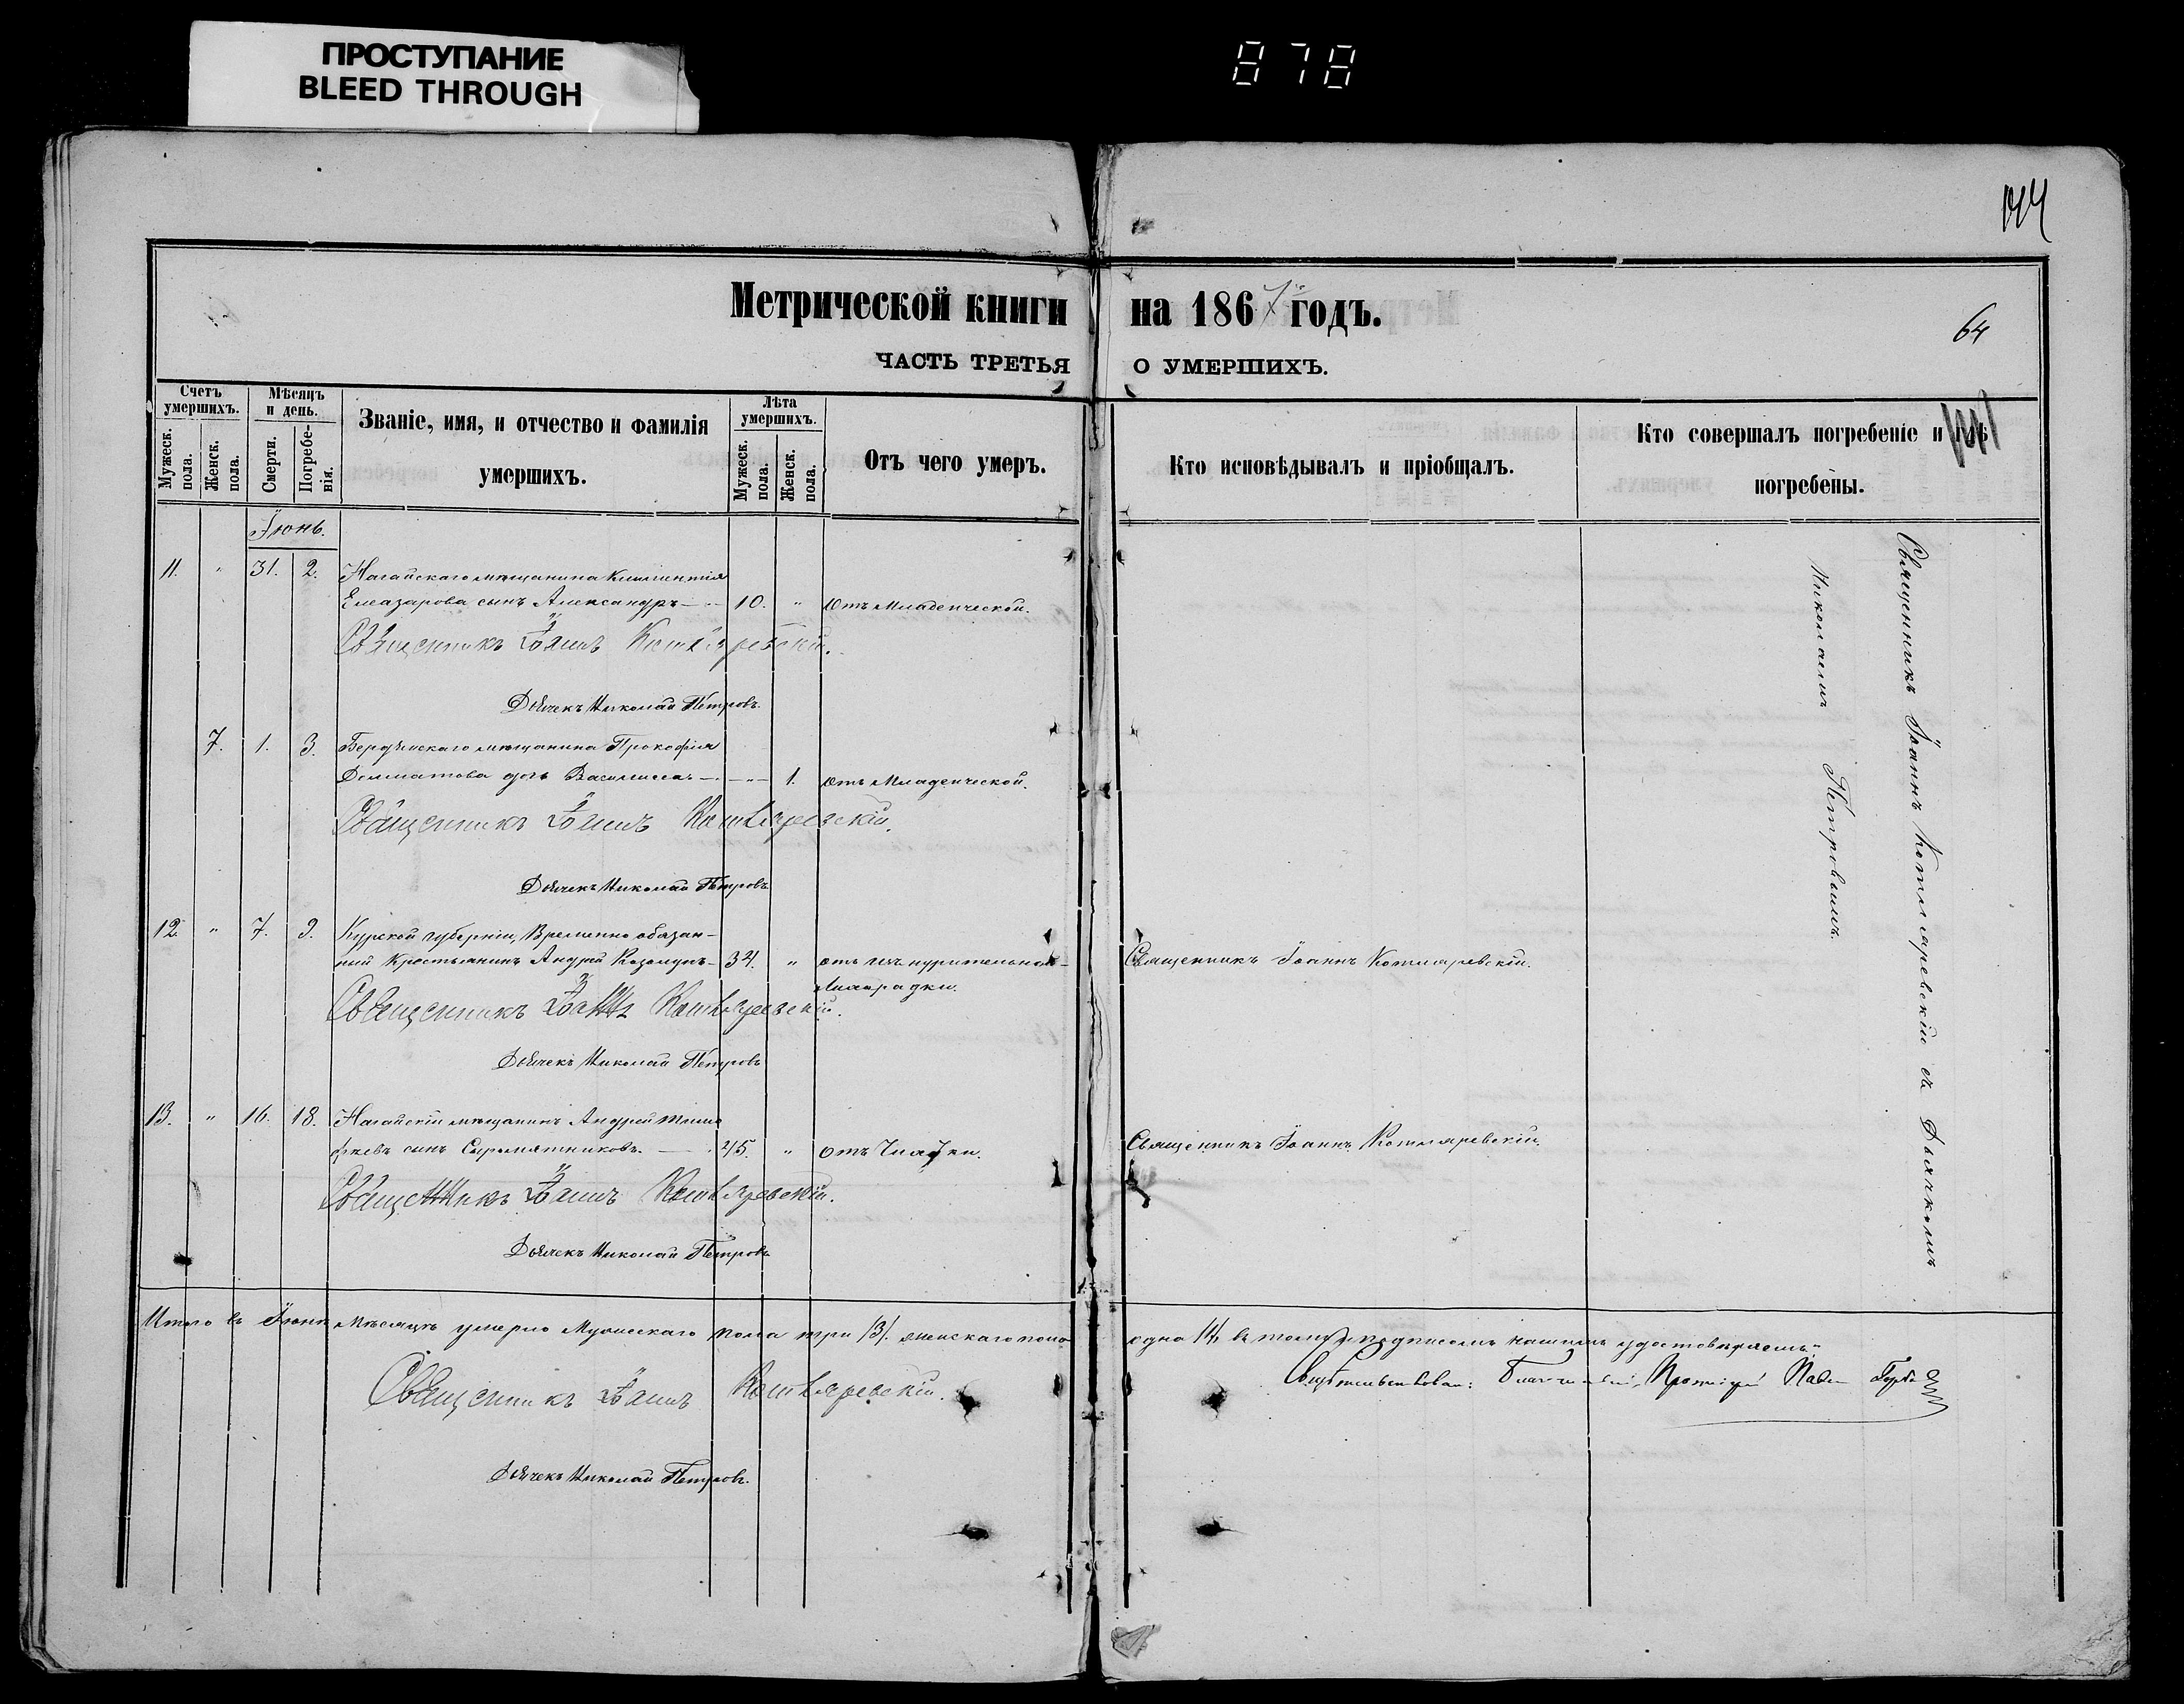 ПРОСТУПАНИЕ
BLEED THROUGH
878
144
Метрической книги на 1867 годъ.
64
ЧАСТЬ ТРЕТЬЯ О УМЕРШИХЪ.
Счетъ умершихъ.
Мужеск. пола.
Женск. пола.
Мѣсяцъ и день.
Смерти.
Погребенія.
Званіе, имя, и отчество и фамилія
умершихъ.
Лѣта умершихъ.
Мужеск. пола.
Женск. пола.
Отъ чего умеръ.
Кто исповѣдывалъ и пріобщалъ.
Кто совершалъ погребеніе и гдѣ
погребены.
Іюнь.
11. " 31. 2. Нагайскаго мѣщанина Климентія
Елеазарова сынъ Александръ 10. " Отъ Младенческой.
Священникъ Іоаннъ Котляревскій.
Дьячекъ Николай Петровъ.
7. 1. 3. Бердянскаго мѣщанина Прокофія
Долматова дочь Василисса " 1. Отъ Младенческой.
Священникъ Іоаннъ Котляревскій.
Дьячекъ Николай Петровъ
12. " 7. 9. Курской губерніи, Временно обязан-
ный Крестьянинъ Андрей 34. " отъ изнурительной
Лихорадки.
Священникъ Іоаннъ Котляревскій.
Священникъ Іоаннъ Котляревскій.
Дьячекъ Николай Петровъ
13. " 16. 18. Нагайскій мѣщанинъ Андрей Тимо
фѣевъ сынъ Сыромятниковъ. 45. " Отъ Чахотки.
Священникъ Іоаннъ Котляревскій.
Священникъ Іоаннъ Котляревскій.
Дьячекъ Николай Петровъ
Священникъ Іоаннъ Котляревскій съ Дьячкомъ
Николаемъ Петровымъ.
Итого въ Іюнѣ мѣсяцѣ умерло Мужескаго пола три /3/. женскаго пола одна /1/ въ томъ подписомъ нашимъ удостовѣряемъ:
Священникъ Іоаннъ Котляревскій.
Свидѣтельствовалъ: Благочинный, Протоіерей Павел
Дьячекъ Николай Петровъ.